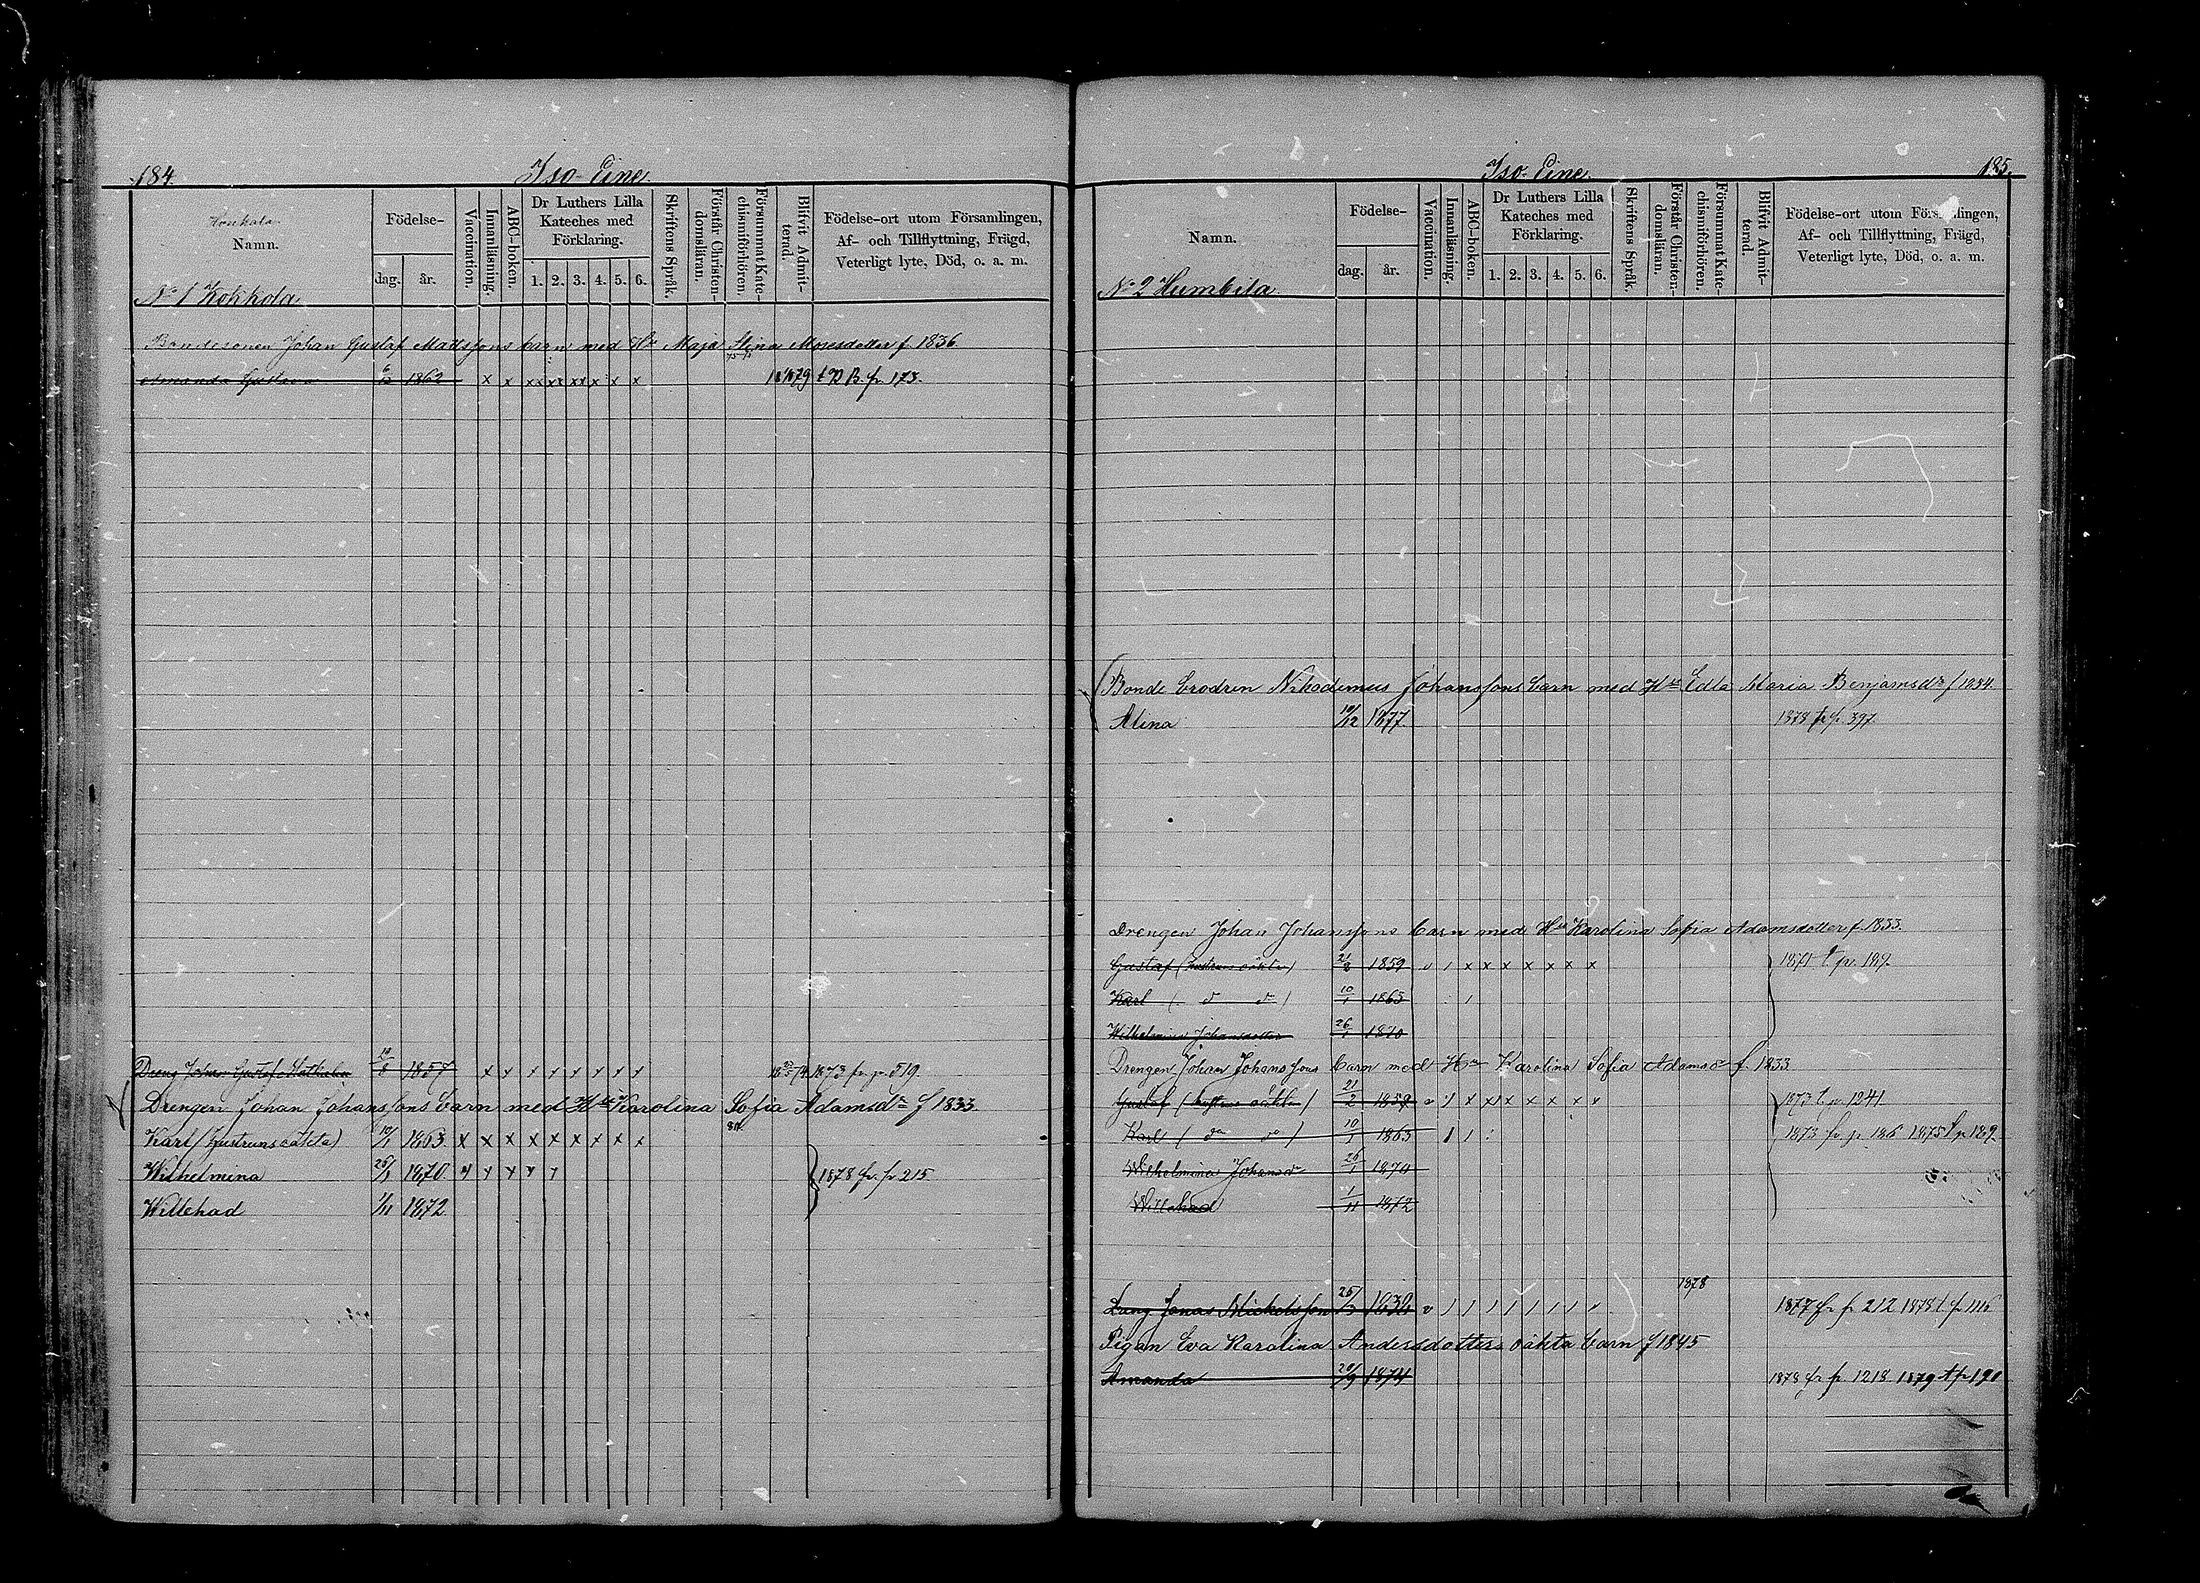 184. Iso-Eine.
Konkala
Namn.
Födelse-
dag. år.
Vaccination.
Innanläsning.
ABC-boken.
Dr Luthers Lilla Kateches med Förklaring.
1. 2. 3. 4. 5. 6.
Skriftens Språk.
Förstår Christendomsläran.
Försummat Katechismiförhören.
Blifvit Admitterad.
Födelse-ort utom Församlingen,
Af- och Tillflyttning, Frägd,
Veterligt lyte, Död, o. a. m.
No 1 Kokkola
Bondesonen Johan Gustaf Mattssons barn med Hu Maja Stina Mosesdotter f. 1836.
Amanda Gustava 6/12 1862 x x xx xx xx x x x 1879 t R B. p. 173.
Dreng Johan Gustaf 19/8 1857 x x x x x x x x 1873 fr. p. 519.
Drengen Johan Johanssons barn med Hu Karolina Sofia Adamsdr f 1833
Karl (hustruns oäkta) 10/1 1863 x x x x x x x x x
Wilhelmina 26/1 1870 x x x x x
1878 fr. p 215
Willehad 1/11 1872
Iso-Eine. 185.
Namn.
Födelse-
dag. år.
Vaccination.
Innanläsning.
ABC-boken.
Dr Luthers Lilla Kateches med Förklaring.
1. 2. 3. 4. 5. 6.
Skriftens Språk.
Förstår Christendomsläran.
Försummat Katechismiförhören.
Blifvit Admitterad.
Födelse-ort utom Församlingen,
Af- och Tillflyttning, Frägd,
Veterligt lyte, Död, o. a. m.
No 2 Humbila
Bonde brodren Nikodemus Johanssons barn med Hu Edla Maria Benjamsdr f 1854.
Alina 10/12 1877 1878 fr p. 397
Drengen Johan Johanssons barn med Hu Karolina Sofia Adamsdotter f. 1833.
Gustaf (hustruns oäkta) 21/2 1859 v / x x x x x x x 1871 t p. 189.
Karl ( d do ) 10/1 1863
Wilhelmina Johansdotter 26/1 1870
Drengen Johan Johanssons barn med Hu Karolina Sofia Adamsdr f. 1833
Gustaf (hustruns oäkta) 21/2 1859 1873 t p. 1241
Karl ( do do ) 10/1 1863 1873 fr p 186 1875 t p 189.
Wilhelmina Johansdr 26/1 1870
Willehad 1/11 1872
1878
Dräng Jonas Mickelsson 1877 fr p 212 1878 t p 1116
Pigan Eva Karolina Andersdotters oäkta barn f 1845
Amanda 20/9 1874 1878 fr p 1218 1879 t p 190